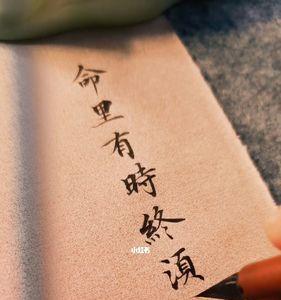 命里有時終須
小红书